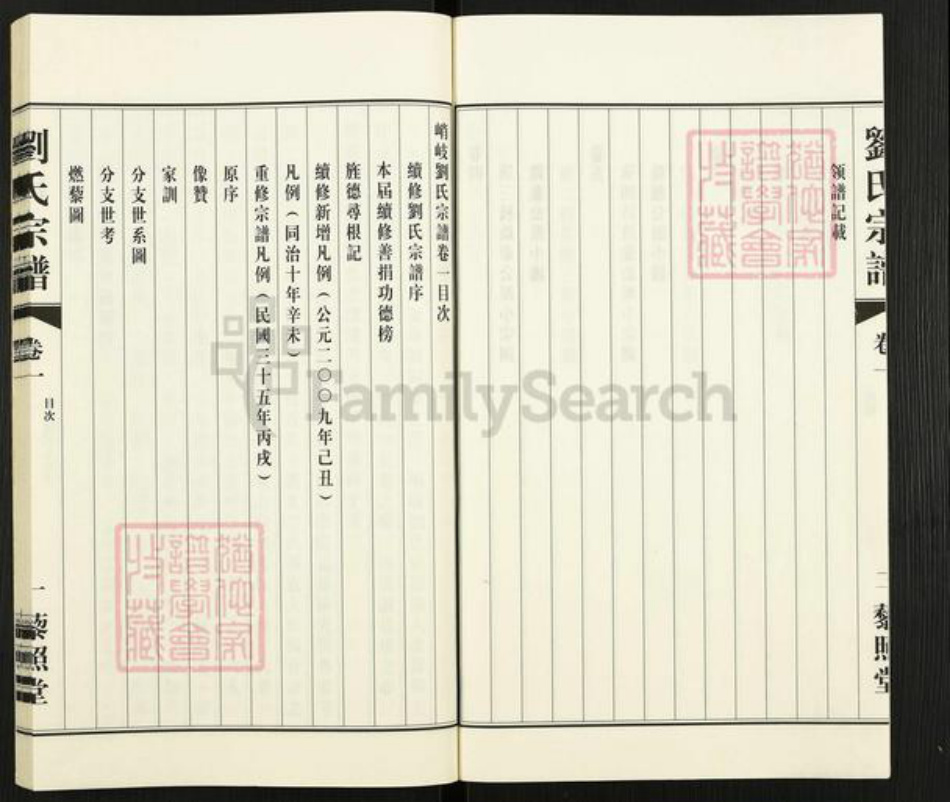 領譜記載
劉氏宗譜
卷
二
藜照堂
峭岐劉氏宗譜卷一目次
續修劉氏宗譜序
本屆續修善捐功德榜
旌德尋根記
續修新增凡例(公元二〇〇九年己丑)
凡例(同治十年辛未)
重修宗譜凡例(民國三十五年丙戌)
原序
像贊
家訓
分支世系圖
分支世考
燃藜圖
劉氏宗譜
卷一
目次
一
藜照堂
FamilySearch